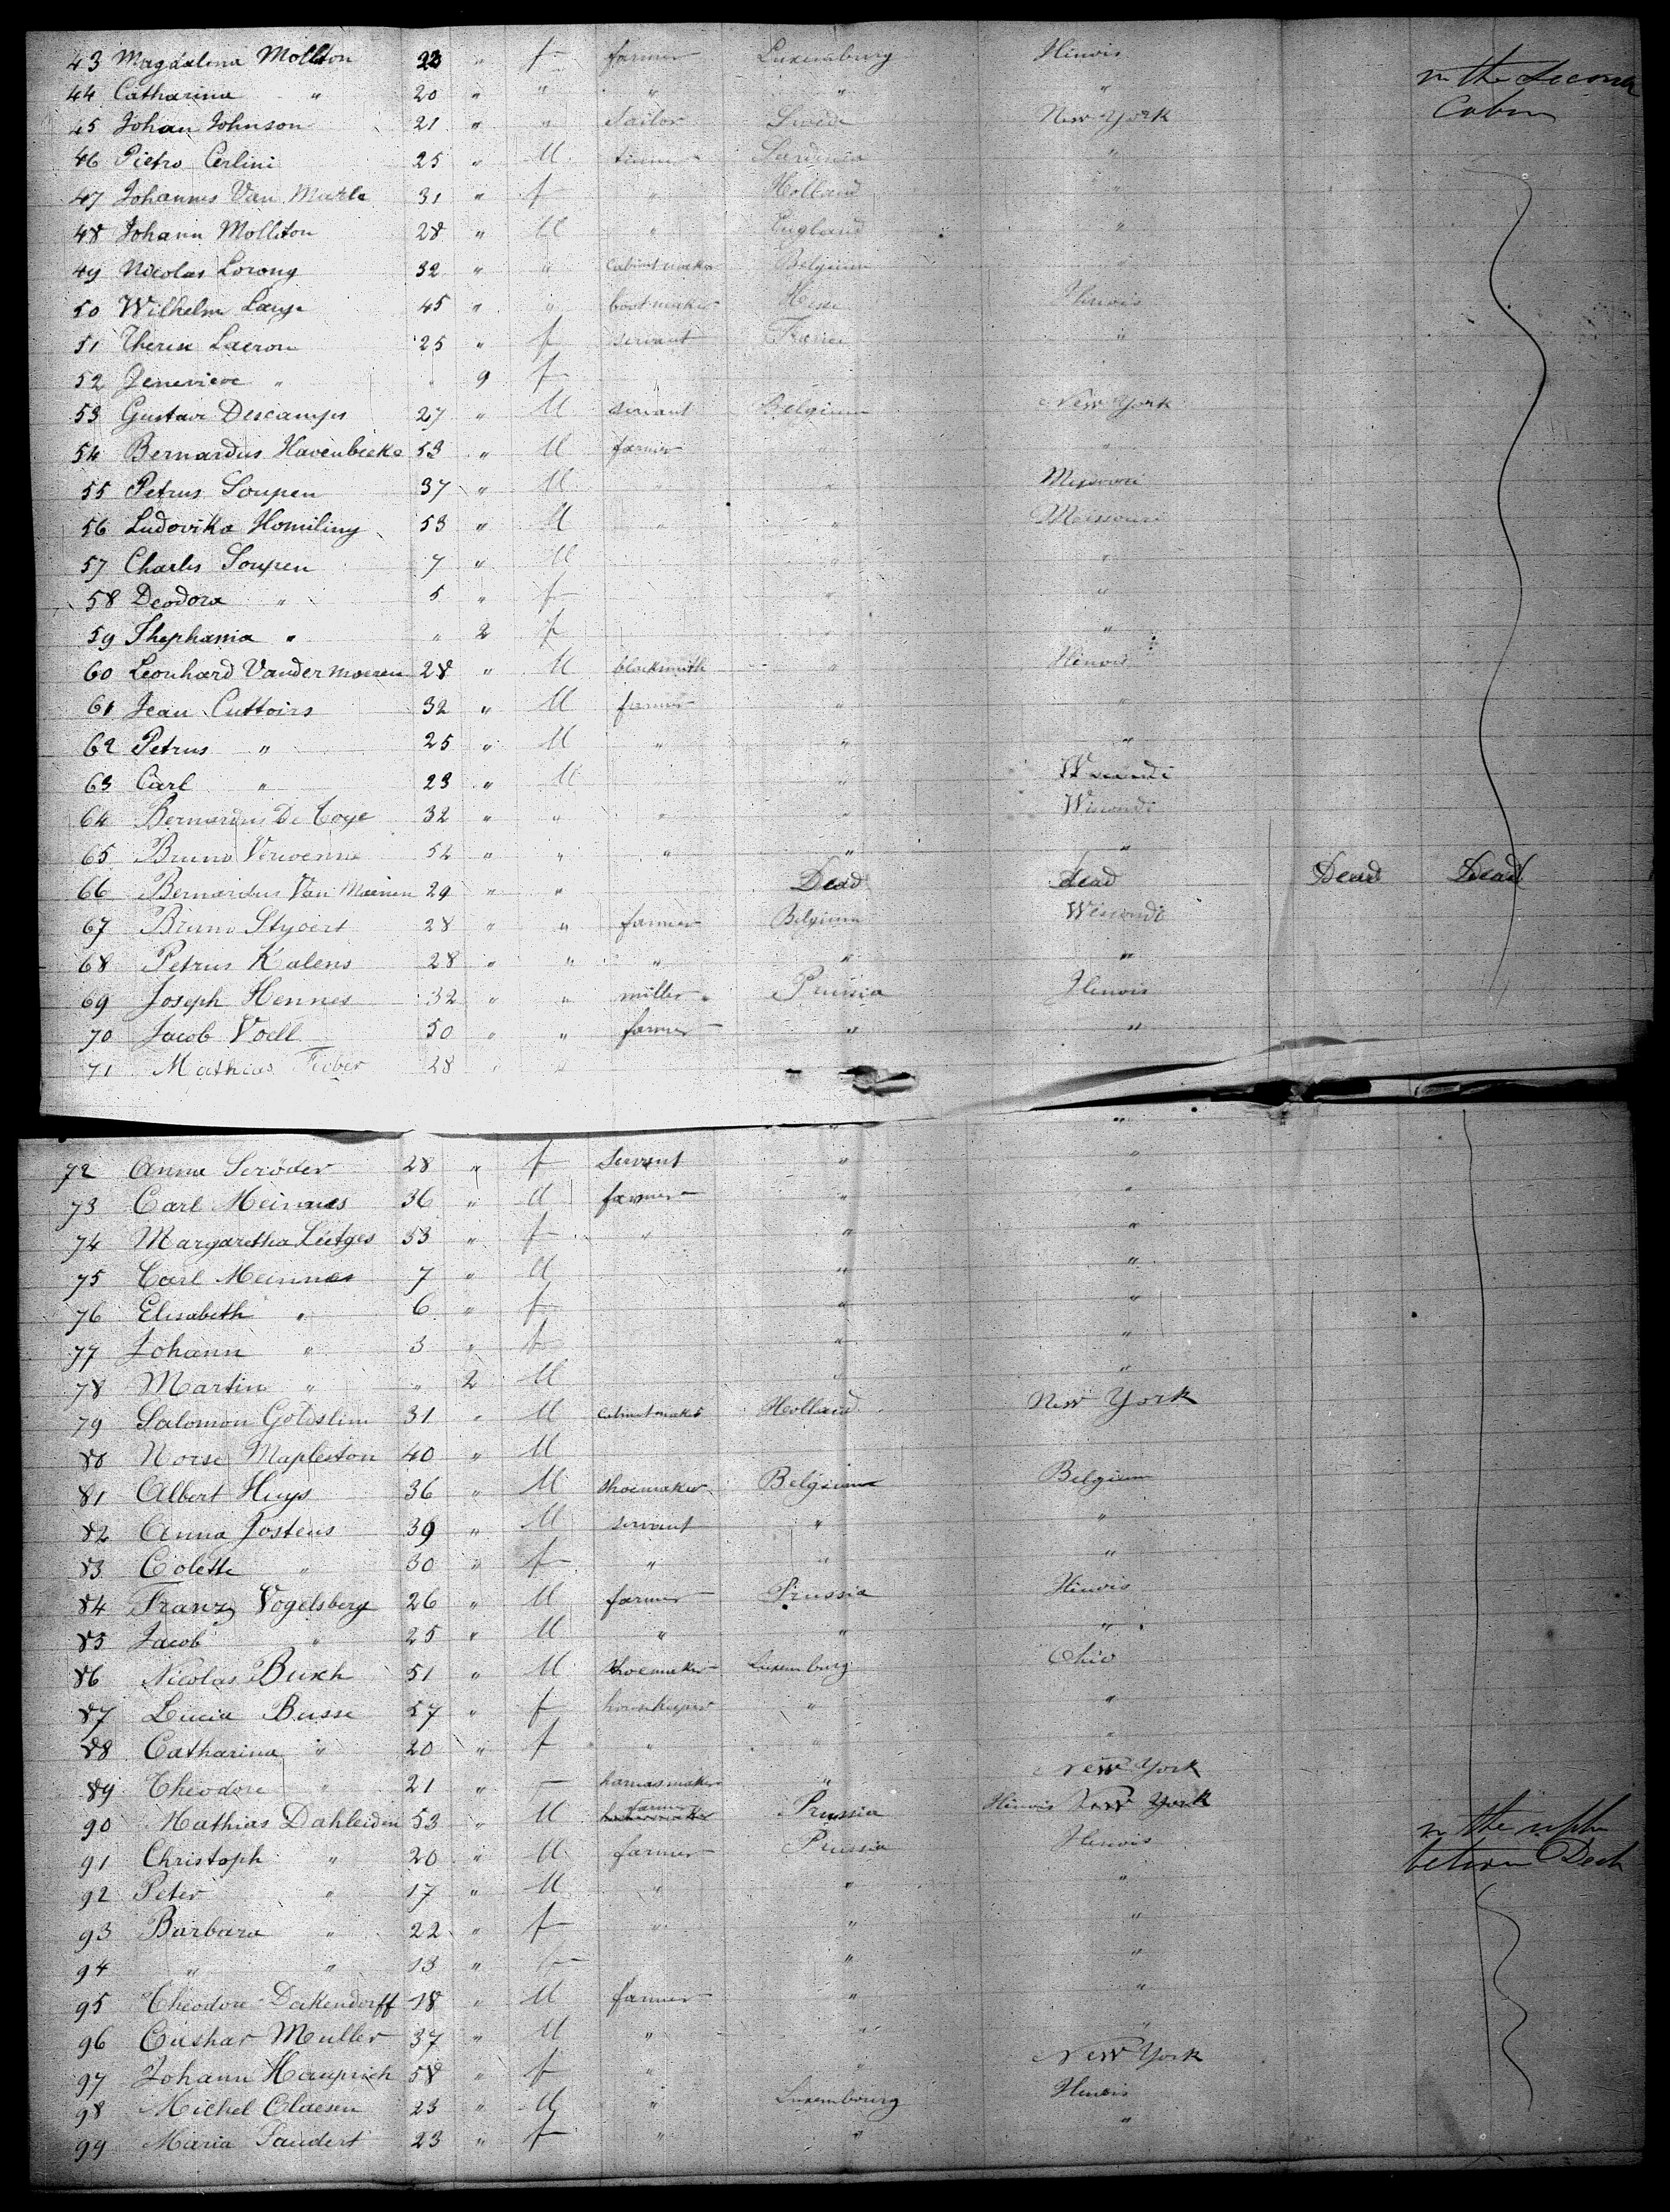 43 Magdalena Molliton 23 " f farmer Luxemburg Ilinois in the second
44 Catharina " 20 " " " " " Cabin
45 Johan Johnson 21 " " Sailor Swede New York
46 Pietro Cerlini 25 " M Sardinia "
47 Johannes Van Marle 31 " f " Holland "
48 Johann Molliton 28 " M " England "
49 Nicolas Lorong 32 " " Cabinetmaker Belgium "
50 Wilhelm Lange 45 " " bootmaker Hesse Ilinois
51 Therese Lacron 25 " f servant France "
52 Genevieve " " 9 f
53 Gustave Descamps 27 " M servant Belgium New York
54 Bernardus Havenbeeke 53 " M farmer " "
55 Petrus Soupen 37 " M " " Missouri
56 Ludovika Homiliny 53 " M " " Moissouri
57 Charles Soupen 7 " M " "
58 Deodora " 5 " f " "
59 Thephania " " 2 f " "
60 Leonhard Vandermoeren 28 " M blacksmith " Ilinois
61 Jean Cuttoirs 32 " M farmer " "
62 Petrus " 25 " M " " "
63 Carl " 23 " M "
64 Bernardus De Coye 32 " " " " Wisconsi
65 Bruno Verwenne 52 " " " " "
66 Bernardus Van Maenen 29 " " Dead dead Dead Dead
67 Bruno Styvert 28 " " farmer Belgium Wisconsi
68 Petrus Kalens 28 " " " " "
69 Joseph Hennes 32 " " miller Prussia Ilinois
70 Jacob Voell 50 " " farmer " "
71 Mathias Fieber 28 " " " "
72 Anna Scröder 28 " f Servant " "
73 Carl Meinnes 36 " M farmer " "
74 Margaretha Lietges 53 " f " " "
75 Carl Meinnes 7 " M " "
76 Elisabeth " 6 " f " "
77 Johann " 3 " f " "
78 Martin " " 2 M " "
79 Salomon Goldslim 31 " M Cabinetmaker Holland New York
80 Norse Mapleston 40 " M
81 Albert Huys 36 " M Shoemaker Belgium Belgium
82 Anna Josteus 39 " M servant " "
83 Colette " 30 " f " " "
84 Franz Vogelsberg 26 " M farmer Prussia Ilinois
85 Jacob " 25 " M " " "
86 Nicolas Buxh 51 " M Shoemaker Luxemburg Ohio
87 Lucia Busse 57 " f housekeeper " "
88 Catharina " 20 " f " " "
89 Theodore " 21 " harnasmaker " New York
90 Mathias Dahleiden 53 " M farmer Prussia Ilinois New York in the upper
91 Christoph " 20 " M farmer Prussia Ilinois between Deck
92 Peter " 17 " M " " "
93 Barbara " 22 " f " " "
94 " " 13 " f " "
95 Theodore Dakendorff 18 " M farmer " "
96 Cashar Muller 37 " M " " "
97 Johann Hauprich 58 " f " " New York
98 Michel Claesen 23 " M " Luxembourg Ilinois
99 Maria Saudert 23 " f " " "